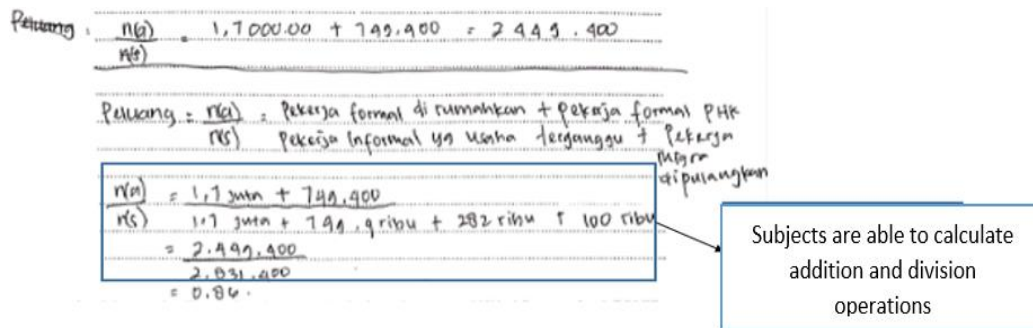 Peluang : n(a) = 1,7000.00 + 749.400 = 2 449 . 400
n(s)
Peluang = n(a) = Pekerja formal di rumahkan + pekerja formal PHK
n(s) Pekerja informal yg usaha terganggu + Pekerja
migran
dipulangkan
n(a) = 1,7 juta + 749.400
n(s) 1.7 juta + 749.4 ribu + 282 ribu + 100 ribu
= 2.449.400
2.831.400
= 0.86.
Subjects are able to calculate
addition and division
operations